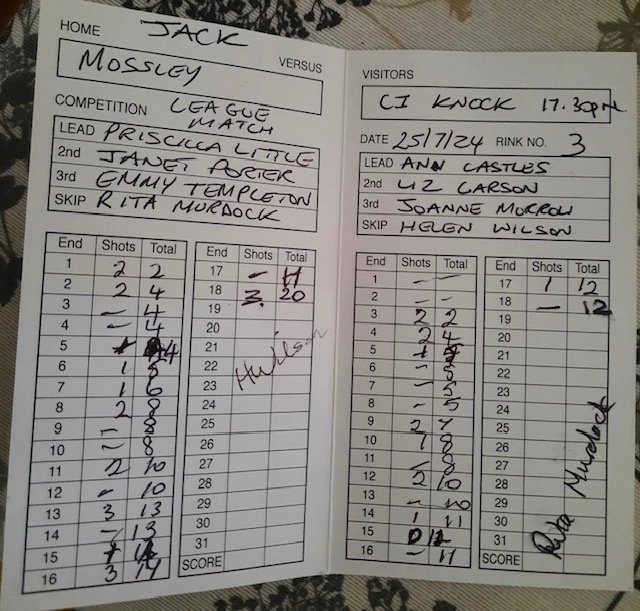 HOME JACK
MOSSLEY VERSUS
COMPETITION LEAGUE MATCH
LEAD PRISCILLA LITTLE
2nd JANET PORTER
3rd EMMY TEMPLETON
SKIP RITA MURDOCK
End Shots Total
1 2 2
2 2 4
3 – 4
4 – 4
5 4
6 1 5
7 1 6
8 2 8
9 – 8
10 – 8
11 2 10
12 – 10
13 3 13
14 – 13
15
16 3
End Shots Total
17 –
18 3 20
19
20
21
22
23
24
25
26
27
28
29
30
31
SCORE
HWilson
VISITORS
CI KNOCK 17.30PM
DATE 25/7/24 RINK NO. 3
LEAD ANN CASTLES
2nd LIZ CARSON
3rd JOANNE MORROW
SKIP HELEN WILSON
End Shots Total
1 – –
2 – –
3 2 2
4 2 4
5
6 – 5
7 – 5
8 – 5
9 2 7
10 1 8
11 – 8
12 2 10
13 – 10
14 1 11
15
16 – 11
End Shots Total
17 1 12
18 – 12
19
20
21
22
23
24
25
26
27
28
29
30
31
SCORE
Rita Murdock